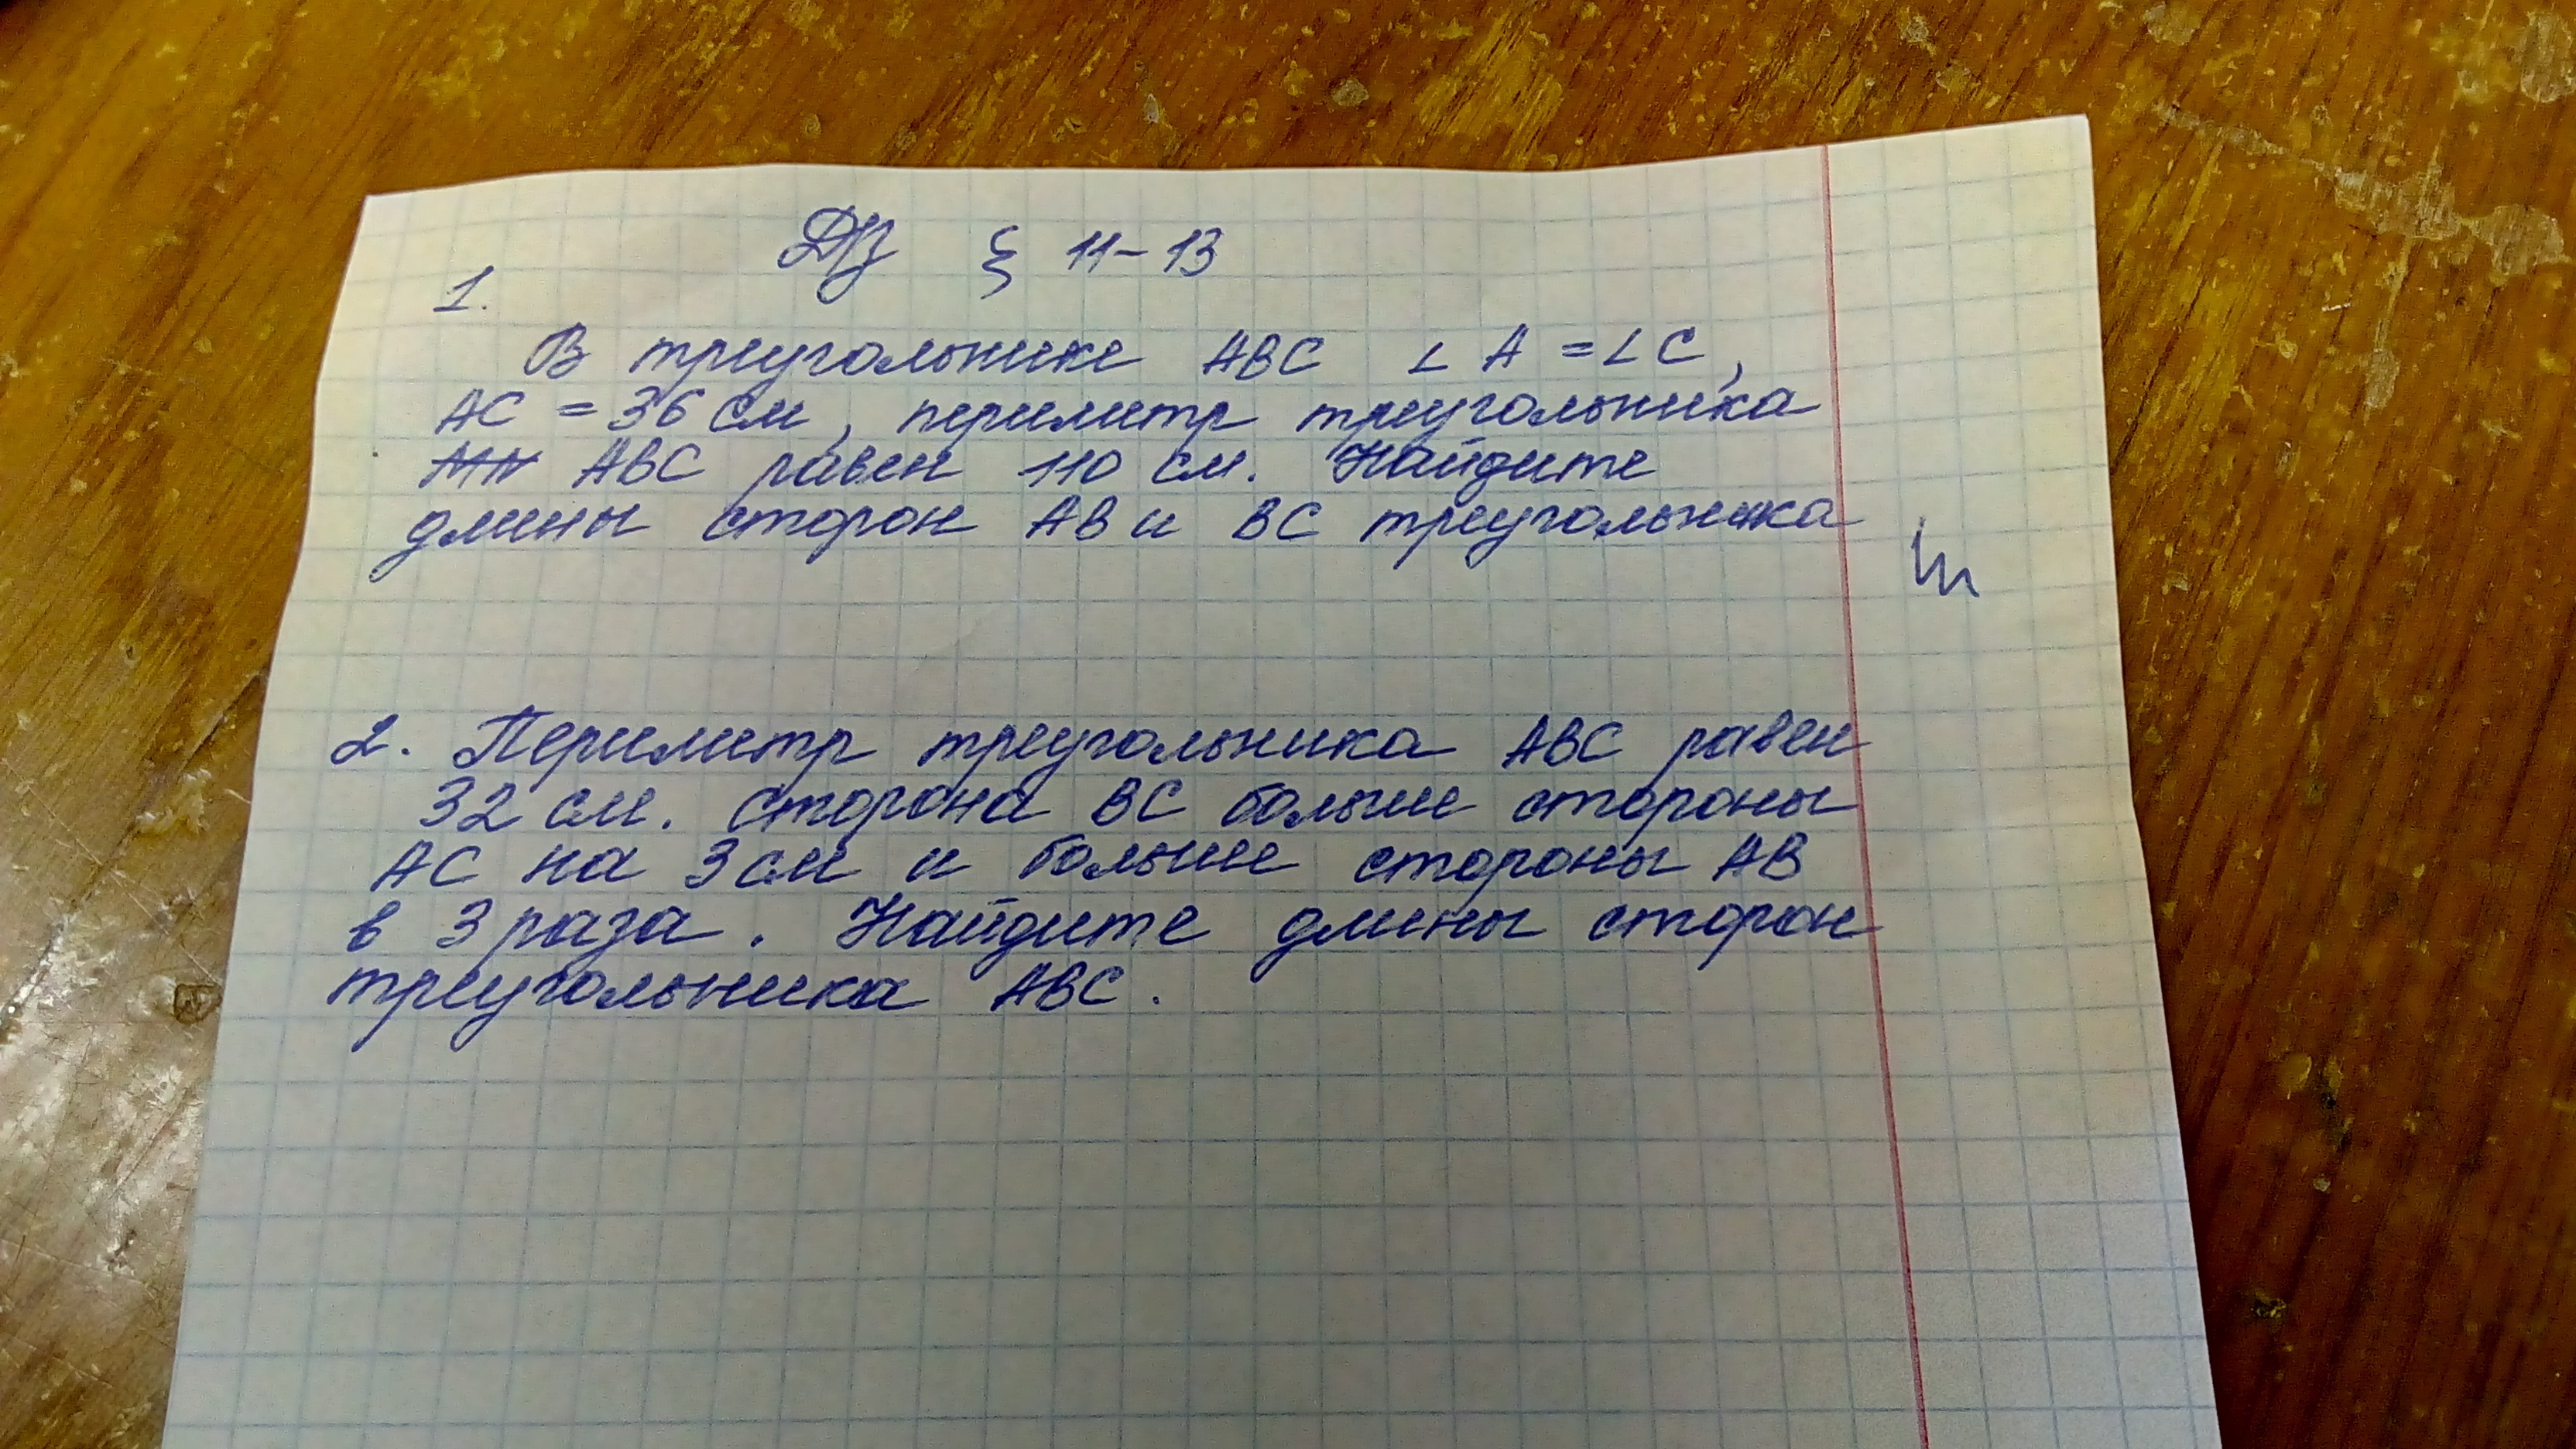 ДЗ § 11-13
1.
В треугольнике ABC ∠ A = ∠ C,
AC = 36 см, периметр треугольника
MN ABC равен 110 см. Найдите
длины сторон AB и BC треугольника
2. Периметр треугольника ABC равен
32 см. Сторона BC больше стороны
AC на 3 см и больше стороны AB
в 3 раза. Найдите длины сторон
треугольника ABC.